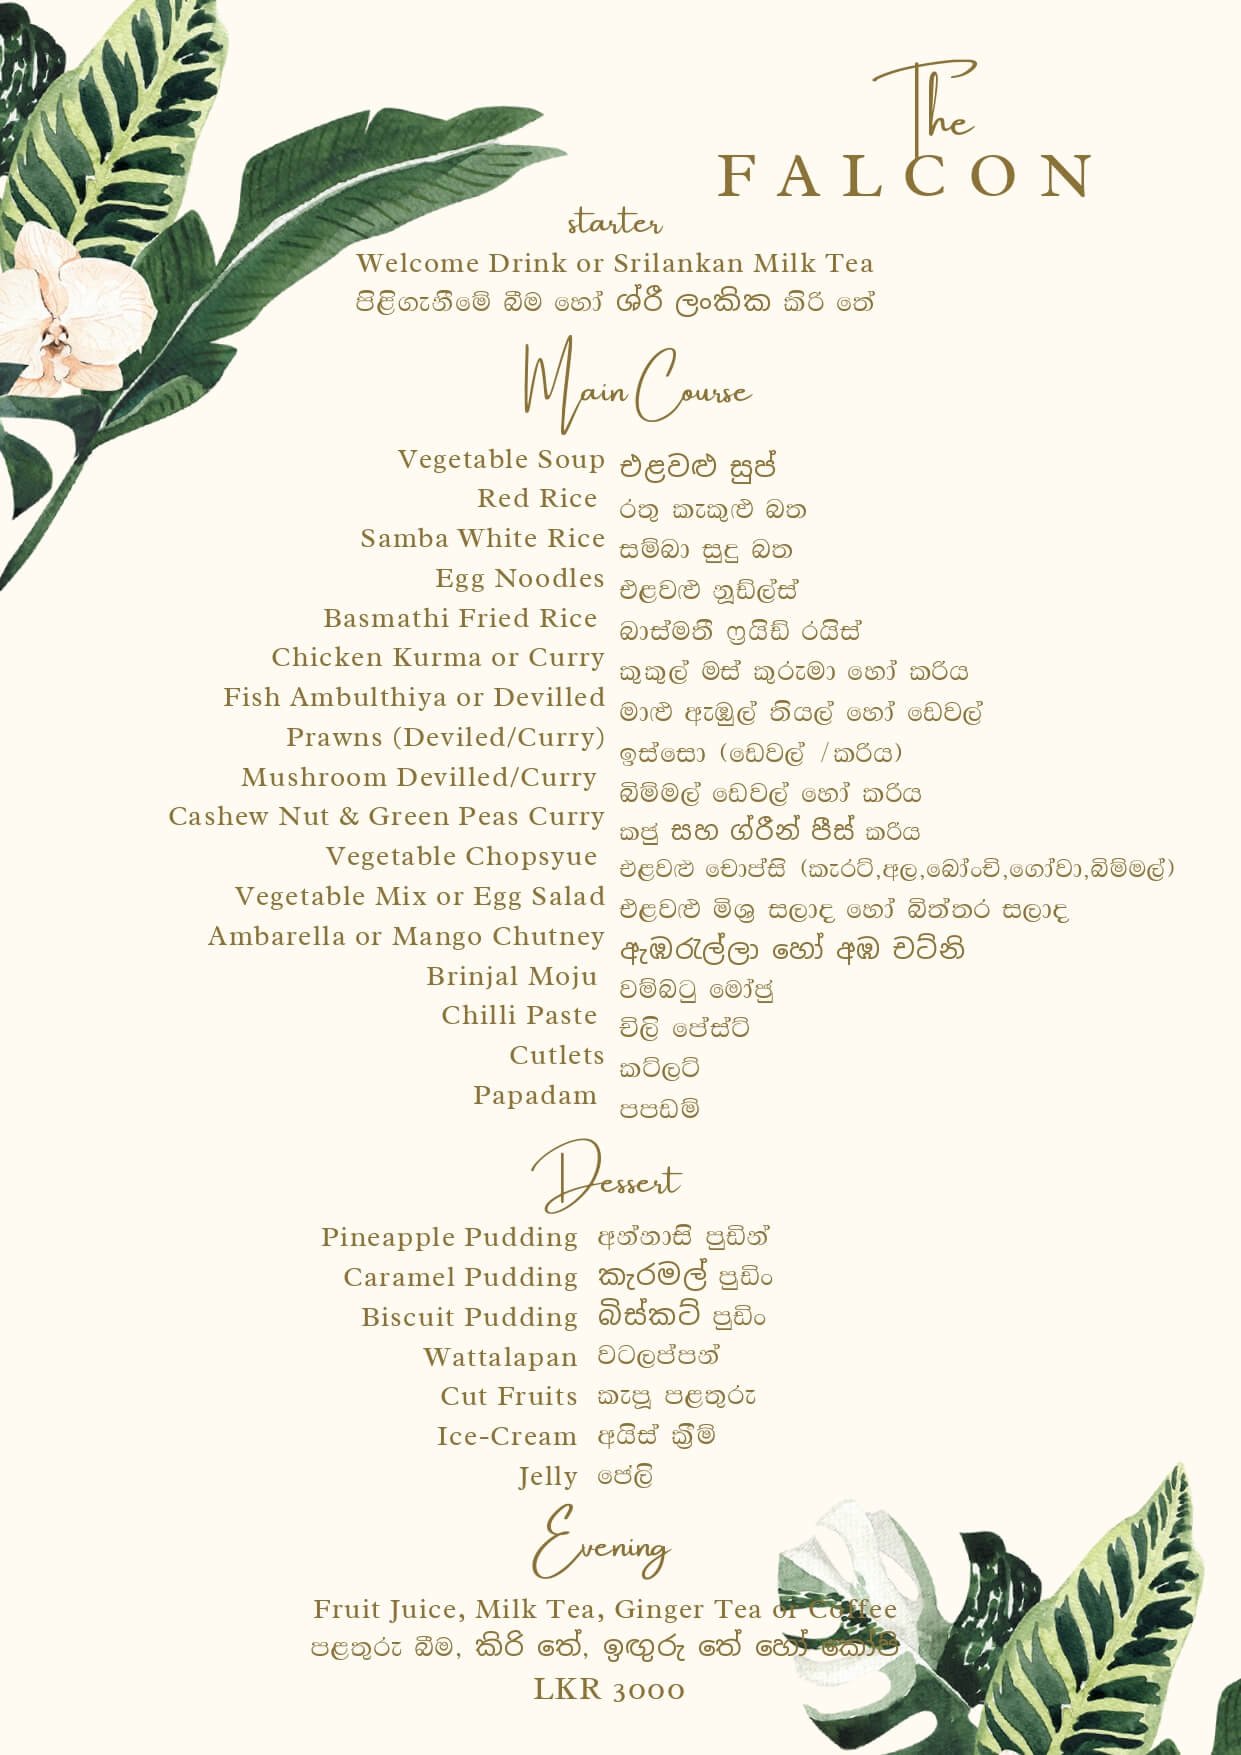 The
FALCON
starter
Welcome Drink or Srilankan Milk Tea
පිළිගැනීමේ බීම හෝ ශ්රී ලංකික කිරි තේ
Main Course
Vegetable Soup එළවළු සුප්
Red Rice රතු කැකුළු බත
Samba White Rice සම්බා සුදු බත
Egg Noodles එළවළු නූඩ්ල්ස්
Basmathi Fried Rice බාස්මතී ෆ්‍රයිඩ් රයිස්
Chicken Kurma or Curry කුකුල් මස් කුරුමා හෝ කරිය
Fish Ambulthiya or Devilled මාළු ඇඹුල් තියල් හෝ ඩෙවල්
Prawns (Deviled/Curry) ඉස්සෝ (ඩෙවල් /කරිය)
Mushroom Devilled/Curry බිම්මල් ඩෙවල් හෝ කරිය
Cashew Nut & Green Peas Curry කජු සහ ග්රීන් පීස් කරිය
Vegetable Chopsyue එළවළු චොප්සි (කැරට්,අල,බෝංචි,ගෝවා,බිම්මල්)
Vegetable Mix or Egg Salad එළවළු මිශ්‍ර සලාද හෝ බිත්තර සලාද
Ambarella or Mango Chutney ඇඹරැල්ලා හෝ අඹ චට්නි
Brinjal Moju වම්බටු මෝජු
Chilli Paste චිලි පේස්ට්
Cutlets කට්ලට්
Papadam පපඩම්
Dessert
Pineapple Pudding අන්නාසි පුඩින්
Caramel Pudding කැරමල් පුඩිං
Biscuit Pudding බිස්කට් පුඩිං
Wattalapan වටලප්පන්
Cut Fruits කැපූ පළතුරු
Ice-Cream අයිස් ක්‍රීම්
Jelly ජේලි
Evening
Fruit Juice, Milk Tea, Ginger Tea or Coffee
පළතුරු බීම, කිරි තේ, ඉඟුරු තේ හෝ කෝපි
LKR 3000